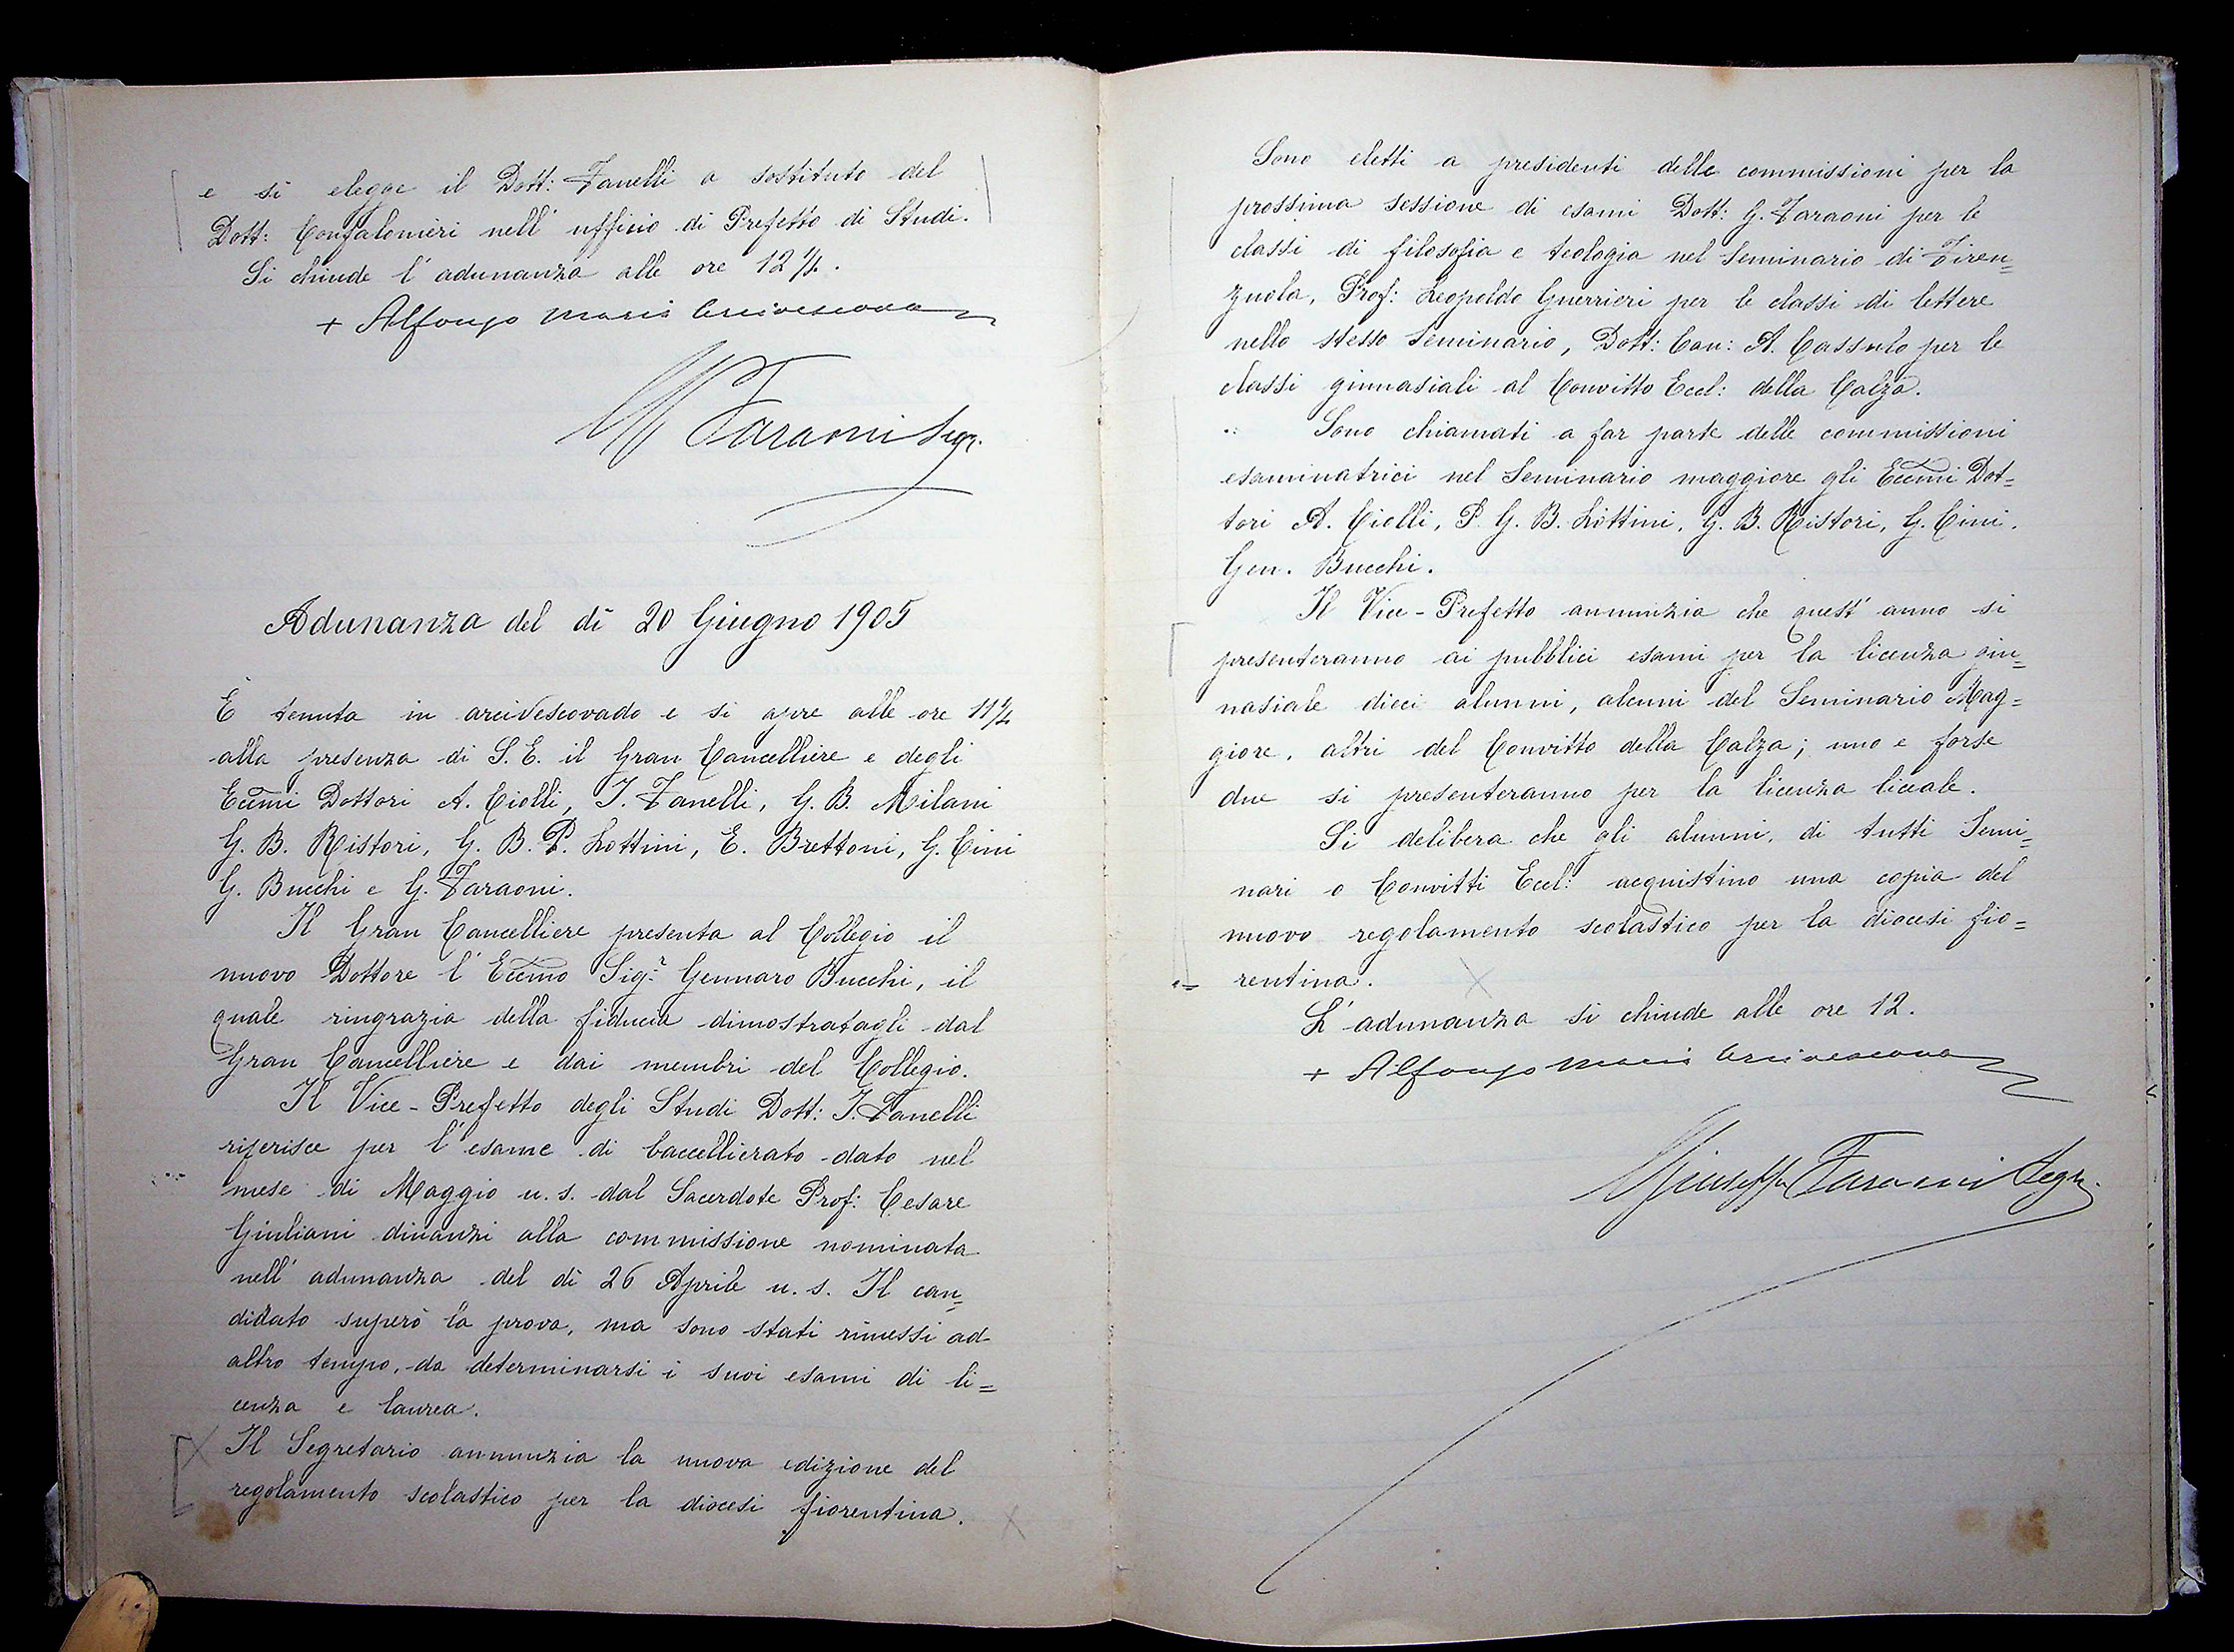 e si elegge il Dott: Fanelli a sostituto del
Dott: Confalonieri nell' ufficio di Prefetto di Studi.
Si chiude l' adunanza alle ore 12 ½.
+ Alfonso Maria Arcivescovo
G Faraoni Segr.
Adunanza del dì 20 Giugno 1905
È tenuta in arcivescovado e si apre alle ore 11 ½
alla presenza di S. E. il Gran Cancelliere e degli
Eccmi Dottori A. Ciolli, I. Fanelli, G. B. Milani
G. B. Ristori, G. B. P. Lottini, E. Brettoni, G. Cini
G. Bucchi e G. Faraoni.
Il Gran Cancelliere presenta al Collegio il
nuovo Dottore l' Eccmo Sigr. Gennaro Bucchi, il
quale ringrazia della fiducia dimostratagli dal
Gran Cancelliere e dai membri del Collegio.
Il Vice-Prefetto degli Studi Dott: I. Fanelli
riferisce per l' esame di baccellierato dato nel
mese di Maggio u. s. dal Sacerdote Prof: Cesare
Giuliani dinanzi alla commissione nominata
nell' adunanza del dì 26 Aprile u. s. Il can=
didato superò la prova, ma sono stati rimessi ad
altro tempo, da determinarsi i suoi esami di li=
cenza e laurea.
Il Segretario annunzia la nuova edizione del
regolamento scolastico per la diocesi fiorentina.
Sono eletti a presidenti delle commissioni per la
prossima sessione di esami Dott: G. Faraoni per le
classi di filosofia e teologia nel Seminario di Firen=
zuola, Prof: Leopoldo Guerrieri per le classi di lettere
nello stesso Seminario, Dott: Can: A. Cassulo per le
classi ginnasiali al Convitto Eccl: della Calza.
Sono chiamati a far parte delle commissioni
esaminatrici nel Seminario maggiore gli Eccmi Dot=
tori A. Ciolli, P. G. B. Lottini, G. B. Ristori, G. Cini,
Gen. Bucchi.
Il Vice-Prefetto annunzia che quest' anno si
presenteranno ai pubblici esami per la licenza gin=
nasiale dieci alunni, alcuni del Seminario Mag=
giore, altri del Convitto della Calza; uno e forse
due si presenteranno per la licenza liceale.
Si delibera che gli alunni, di tutti Semi=
nari o Convitti Eccl: acquistino una copia del
nuovo regolamento scolastico per la diocesi fio=
rentina.
L' adunanza si chiude alle ore 12.
+ Alfonso Maria Arcivescovo
Giuseppe Faraoni Segr.